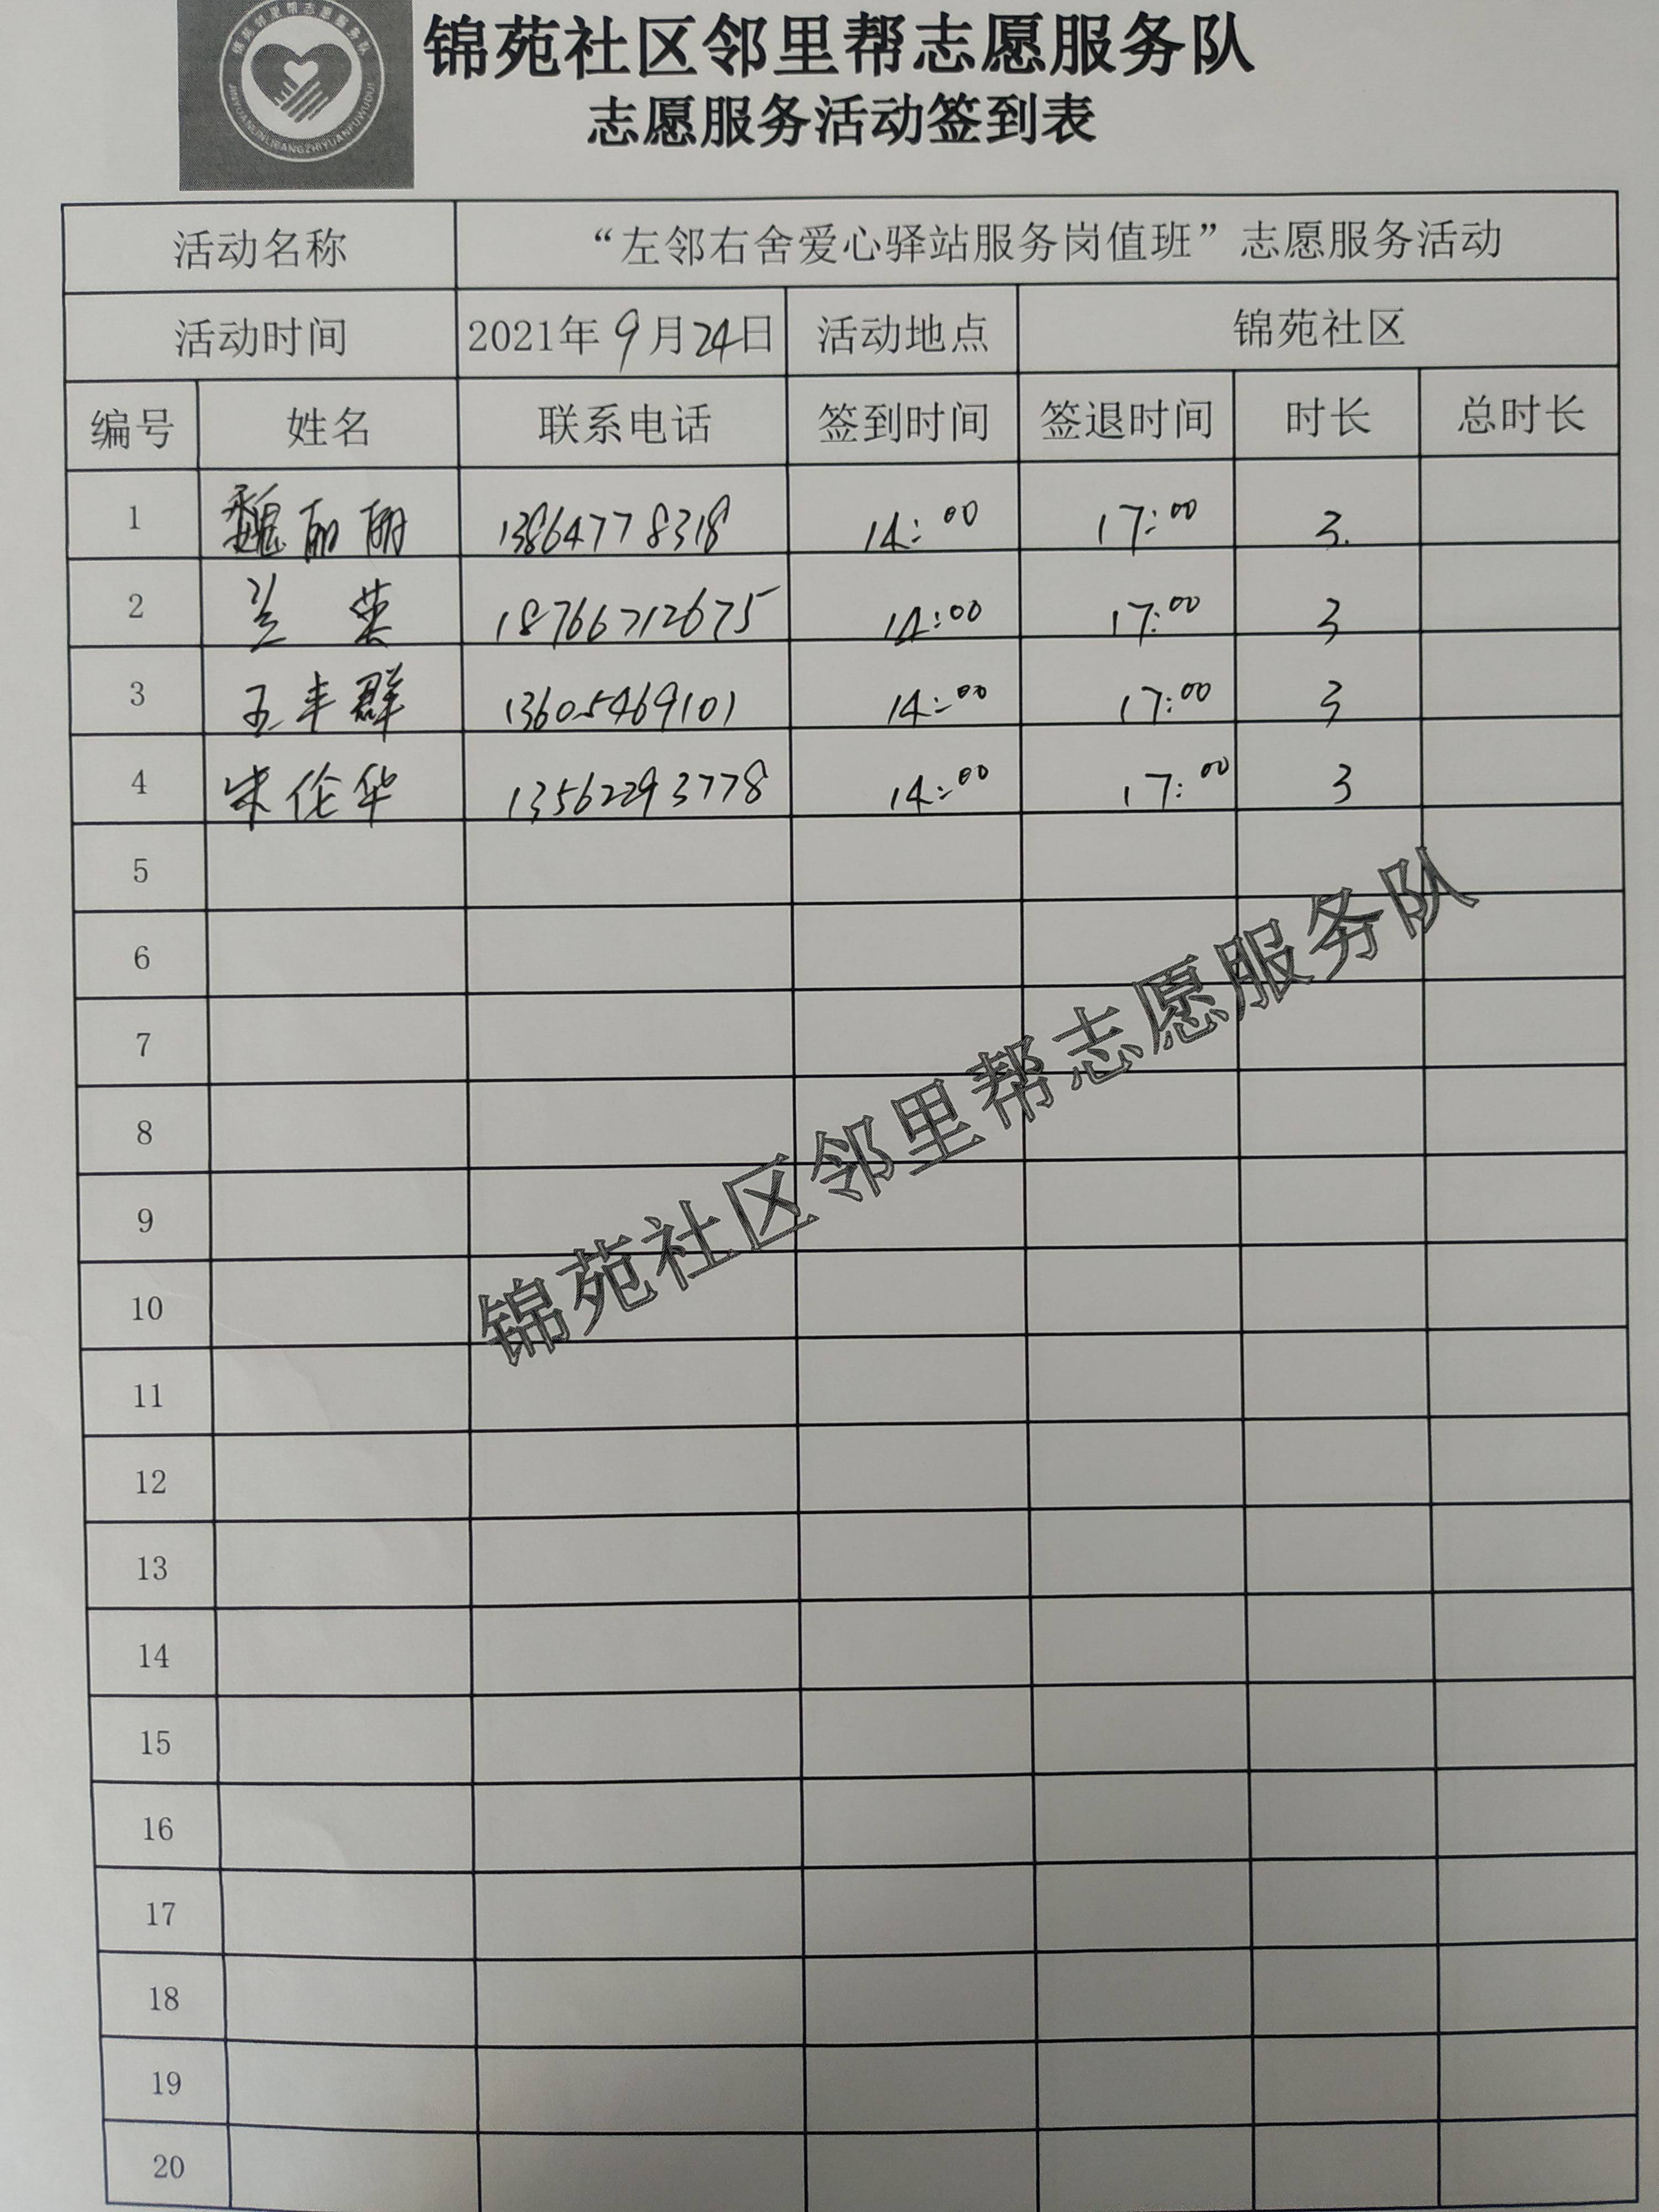 锦苑邻里帮志愿服务队
JINYUANLINLIBANGZHIYUANFUWUDUI
锦苑社区邻里帮志愿服务队
志愿服务活动签到表
活动名称 “左邻右舍爱心驿站服务岗值班”志愿服务活动
活动时间 2021年 9 月 24 日 活动地点 锦苑社区
编号 姓名 联系电话 签到时间 签退时间 时长 总时长
1 魏丽丽 13864778318 14:00 17:00 3.
2 兰 18766712675 14:00 17:00 3
3 王丰群 13605469101 14:00 17:00 3
4 宋伦华 13562293778 14:00 17:00 3
5
6
7
8
9
10
11
12
13
14
15
16
17
18
19
20
锦苑社区邻里帮志愿服务队